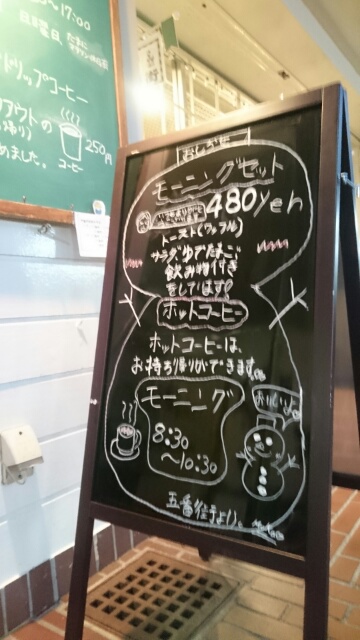 ~17:00
日曜日
ドリップコーヒー
アウトの
250円
コーヒー
めました。
モーニングセット
480yen
トースト(ワッフル)
サラダ ゆでたまご
飲み物付き
をしています
ホットコーヒー
ホットコーヒーは、
お持ち帰りができます。
モーニング
8:30
~10:30
おいしいよ